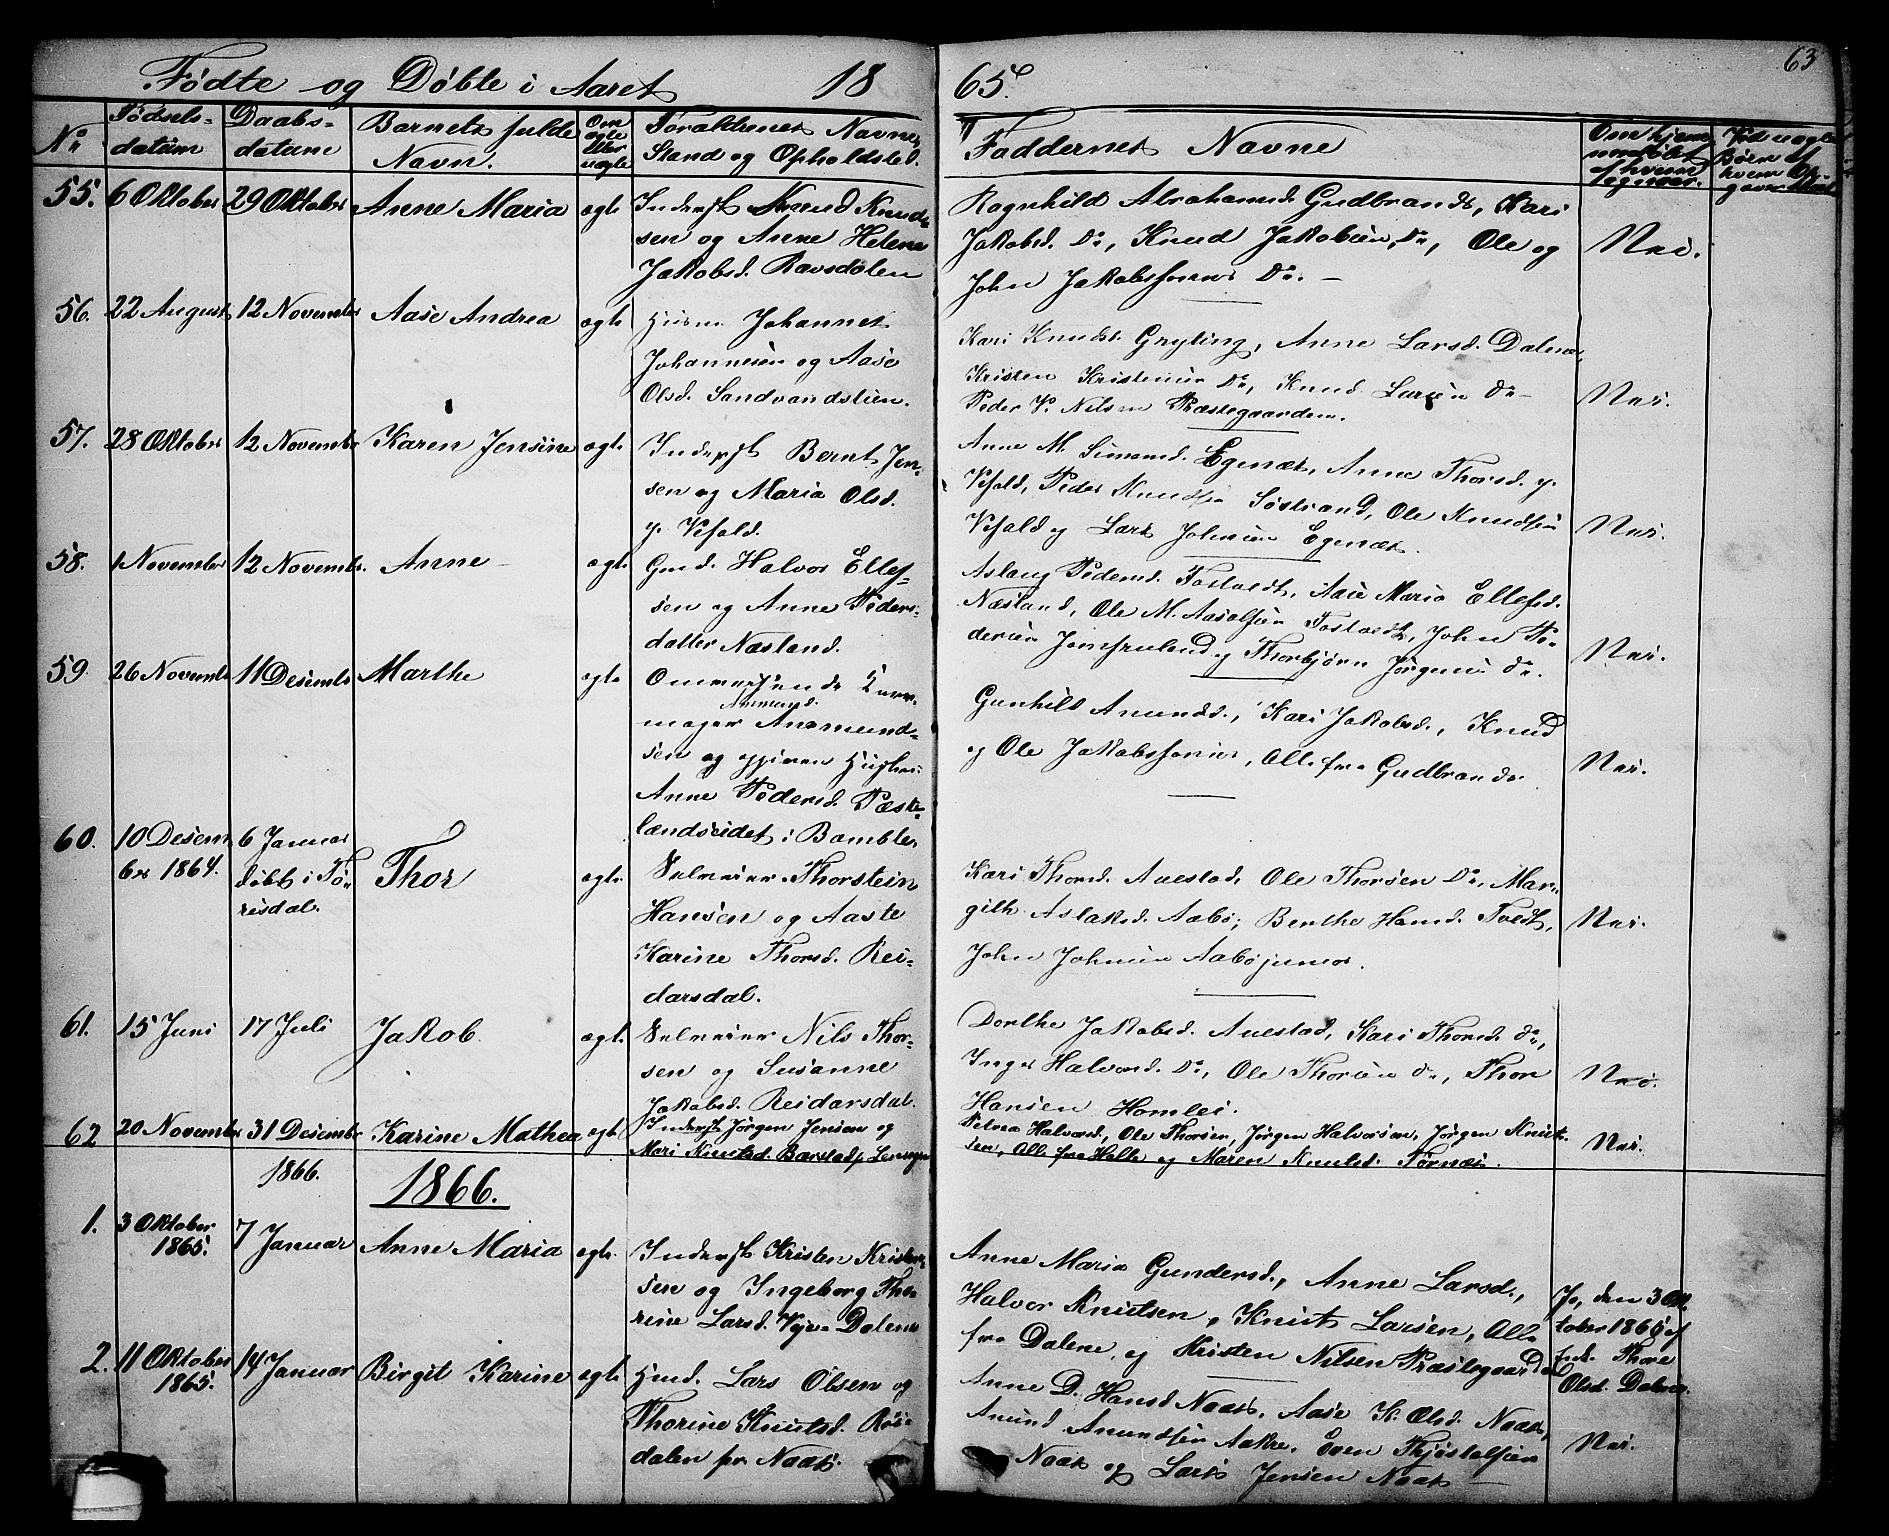 Fødte og Døbte i Aaret 18
65.
63
No
Fødsels-
datum
Daabs-
datum
Barnets fulde
Navn.
Om
ægte
eller
uægte
Forældrenes Navne,
Stand og Opholdsted.
Faddernes Navne
Om hjem-
medøbt
af hvem
Ved uægte
Børn
hvem
55. 6 Oktober 29 Oktober Anne Maria ægte Inderst Knud Knud-
sen og Anne Helene
Jakobsd. Ravsdalen
Ragnhild Abrahamsd. Gudbrands, Kari
Jakobsd. Do, Knud Jakobsen Do, Ole og
John Jakobssønner Do. –
Nei.
56. 22 August 12 November Aase Andrea ægte Husm. Johannes
Johannesen og Aase
Olsd. Sandvandstien.
Kari Knudsd. Gryting, Anne Larsd. Dalene,
Kristen Kristensen Do, Knud Larsen Do
Peder V. Nilsen Præstegaarden.
Nei.
57. 28 Oktober 12 November Karen Jensine ægte Inderst Bernt Jen-
sen og Maria Olsd.
p. Vefald.
Anne M. Simonsd. Egenæs, Anne Thorsd. p.
Vefald, Peder Knudsen Søstrand, Ole Knudsen
Vefald og Lars Johnsen Egenæs.
Nei.
58. 1 November 12 November Anne ægte Gmd. Halvor Ellef-
sen og Anne Peders-
datter Næsland.
Aslaug Pedersd. Tostvedt, Aase Maria Ellefsd.
Næsland, Ole M. Aasolfsen Tostvedt, John Pe-
dersen Jomfruland og Thorbjørn Jørgensen do.
Nei.
59. 26 November 11 Desember Marthe ægte Omreisende
mager Aanmund-
Anmund.
sen og Hustru
Anne Pedersd. Pæste-
landseidet i Bamble.
Gunhild Anundsd., Kari Jakobsd., Knud
og Ole Jakobssønner, Alle fra Gudbrands.
Nei.
60. 10 Desem- 6 Januar
ber 1864. døbt i Tø-
risdal.
Thor ægte Selveier Thorstein
Hansen og Aaste
Karine Thorsd. Rei-
darsdal.
Kari Thorsd. Auestad, Ole Thorsen Do, Mar-
gith Aslaksd. Aabø, Berthe Hansd. Tvedt,
John Johnsen Aabø junior.
Nei.
61. 15 Juni 17 Juli Jakob. ægte Selveier Nils Thor-
sen og Susanne
Jakobsd. Reidarsdal.
Dorthe Jakobsd. Auestad, Kari Thorsd. do,
Inger Halvorsd. Do, Ole Thorsen do, Thor
Hansen Homlei.
Nei.
62 20 November 31 Desember Karine Mathea ægte Inderst Jørgen Jensen og
Mari Knutsd. Barstad
Petrea Halvorsd., Ole Thorsen, Jørgen Halvorsen, Jørgen Knut-
sen, Alle fra Halle og Maren Knutsd. Tørnæs.
Nei.
1866.
1866.
1. 3 Oktober
1865.
7 Januar Anne Maria ægte Inderst Kristen Kristen-
sen og Ingeborg Tho-
rine Larsd. Dalene
Anne Maria Gundersd., Anne Larsd.,
Halvor Knutsen, Knut Larsen, Alle
fra Dalene, og Kristen Nilsen Præstegaarden
Ja, den 3 Ok-
tober 1865 af
Thore
Olsd. Dalene.
2. 11 Oktober
1865.
14 Januar Birgit Karine ægte Husm. Lars Olsen og
Thorine Knutsd. Røse-
dalen p. Naæs.
Anne D. Hansd. Naæs, Aase K. Olsd. Naæs,
Anund Anundsen Aakre, Even Thjøstelfsen
Naæs og Lars Jensen Naæs
Nei.